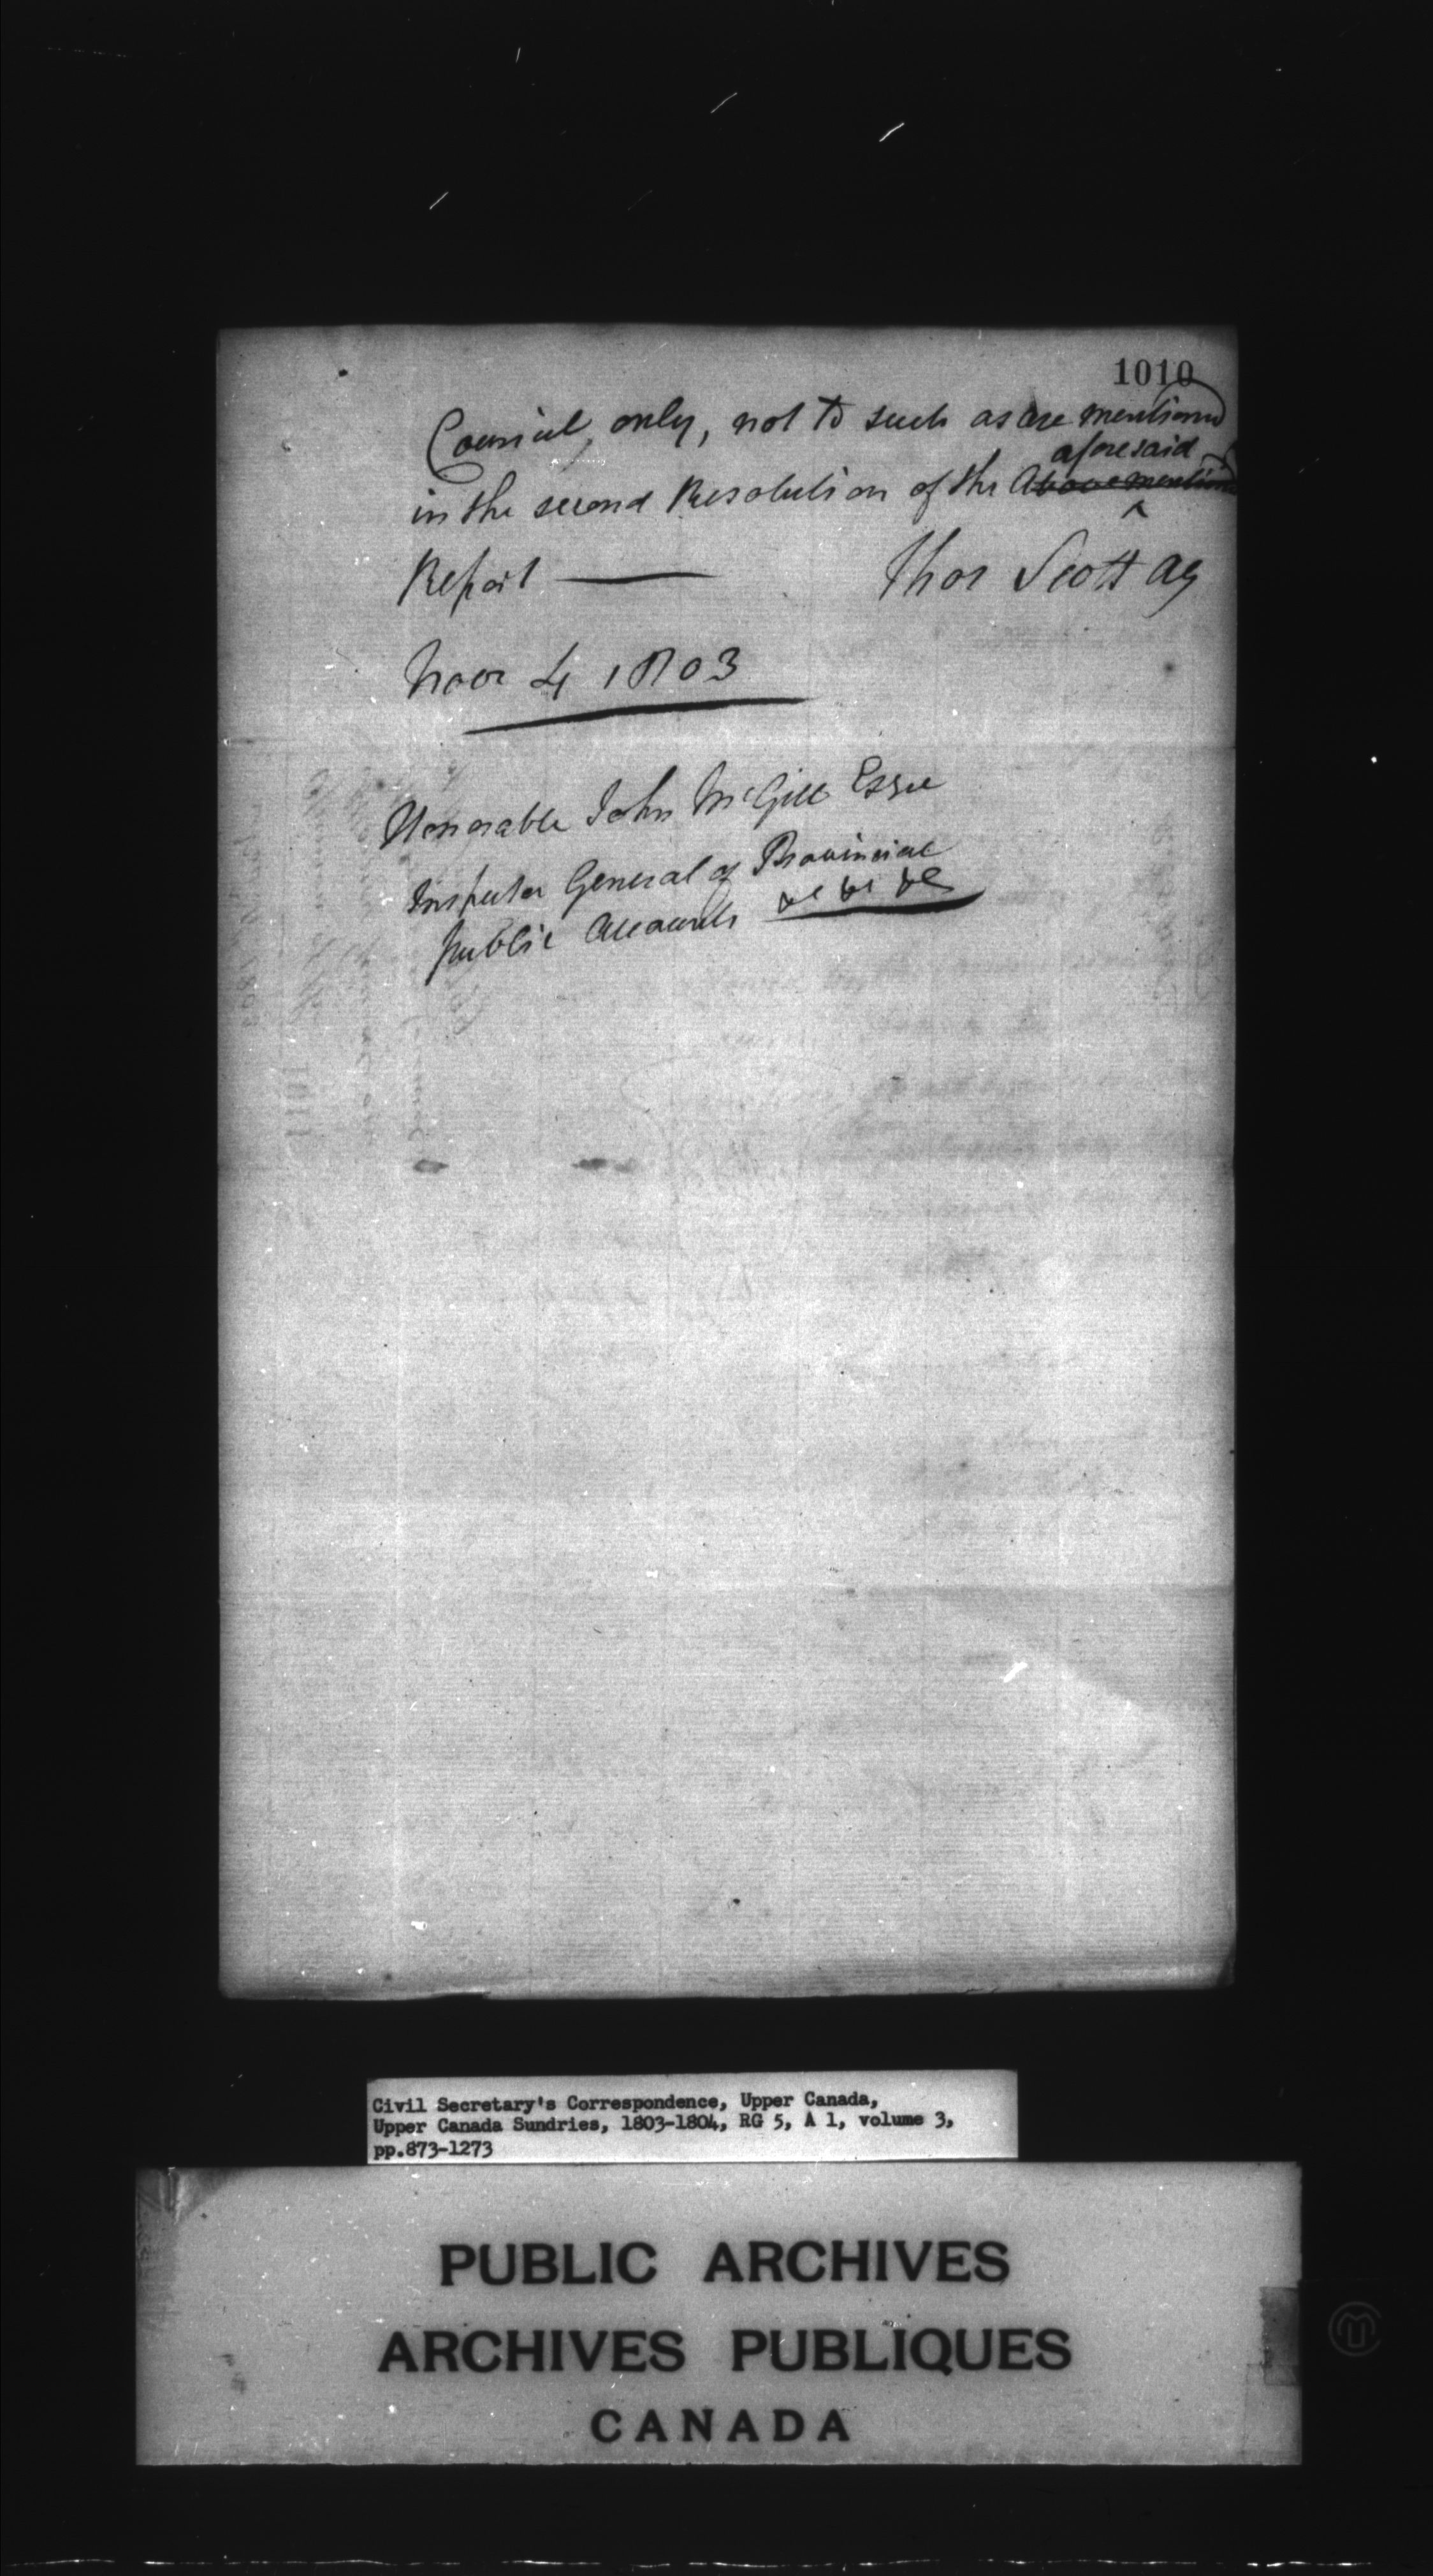 1010
Council only, not to such as are mentioned
aforesaid
in the second Resolution of the Abovementioned
Report —
Thos Scott Ag
Novr 4 1803
Honorable John McGill Esqre
Inspector General of Provincial
Public Accounts &c &c &c
Civil Secretary's Correspondence, Upper Canada,
Upper Canada Sundries, 1803-1804, RG 5, A 1, volume 3,
pp.873-1273
PUBLIC ARCHIVES
ARCHIVES PUBLIQUES
CANADA